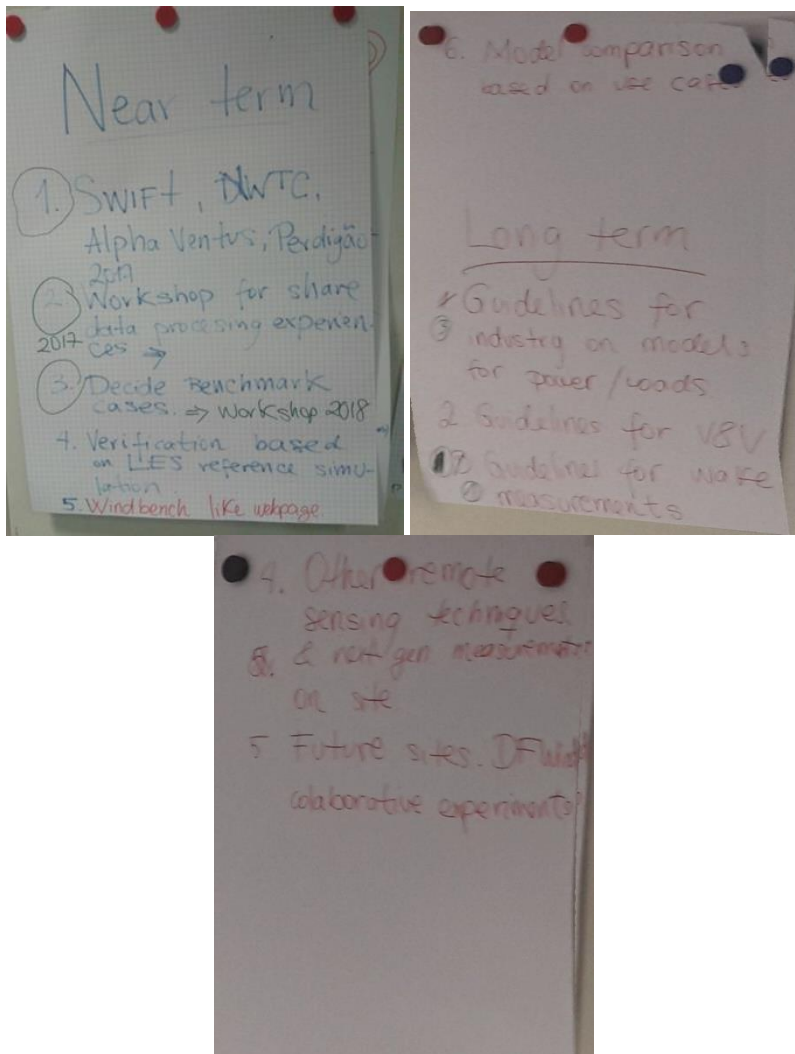 Near term
1. SWIFT, DWTC,
Alpha Ventus, Perdigão
2017
2. Workshop for share
data procesing experien-
2017 ces →
3. Decide Benchmark
cases. ⇒ Workshop 2018
4. Verification based
on LES reference simu-
lation
5. Windbench like webpage.
6. Model comparison
based on use cases
Long term
Guidelines for
③ industry on models
for power/loads
2. Guidelines for V&V
Guidelines for wake
measurements
4. Other remote
sensing techniques
& next gen measurements
on site
5 Future sites. DFWind
colaborative experiments